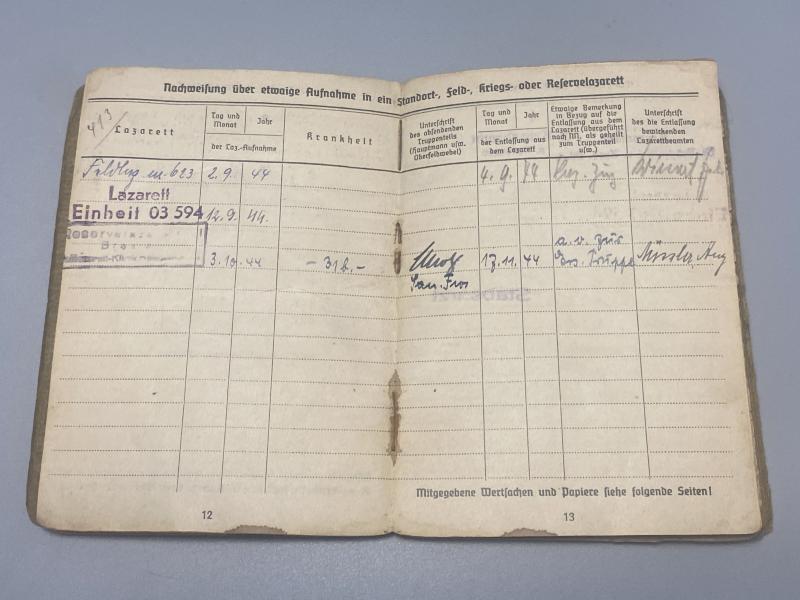 Nachweisung über etwaige Aufnahme in ein Standort-, Feld-, Kriegs- oder Reservelazarett
4/3
Lazarett
Tag und Monat
Jahr
der Laz.-Aufnahme
Krankheit
623 2.9. 44
Lazarett
Einheit 03 594 12.9. 44.
3.10. 44 - 31b. -
12
Unterschrift
des absendenden
Truppenteils
(Hauptmann usw.
Oberfeldwebel)
Tag und Monat
Jahr
der Entlassung aus
dem Lazarett
Etwaige Bemerkung
in Bezug auf die
Entlassung aus dem
Lazarett (übergeführt
nach NN, als geheilt
zum Truppenteil
usw.)
Unterschrift
des die Entlassung
bewirkenden
Lazarettbeamten
4.9. 44
a.v. zur
17.11. 44 Ers. Truppe
Mitgegebene Wertsachen und Papiere siehe folgende Seiten!
13